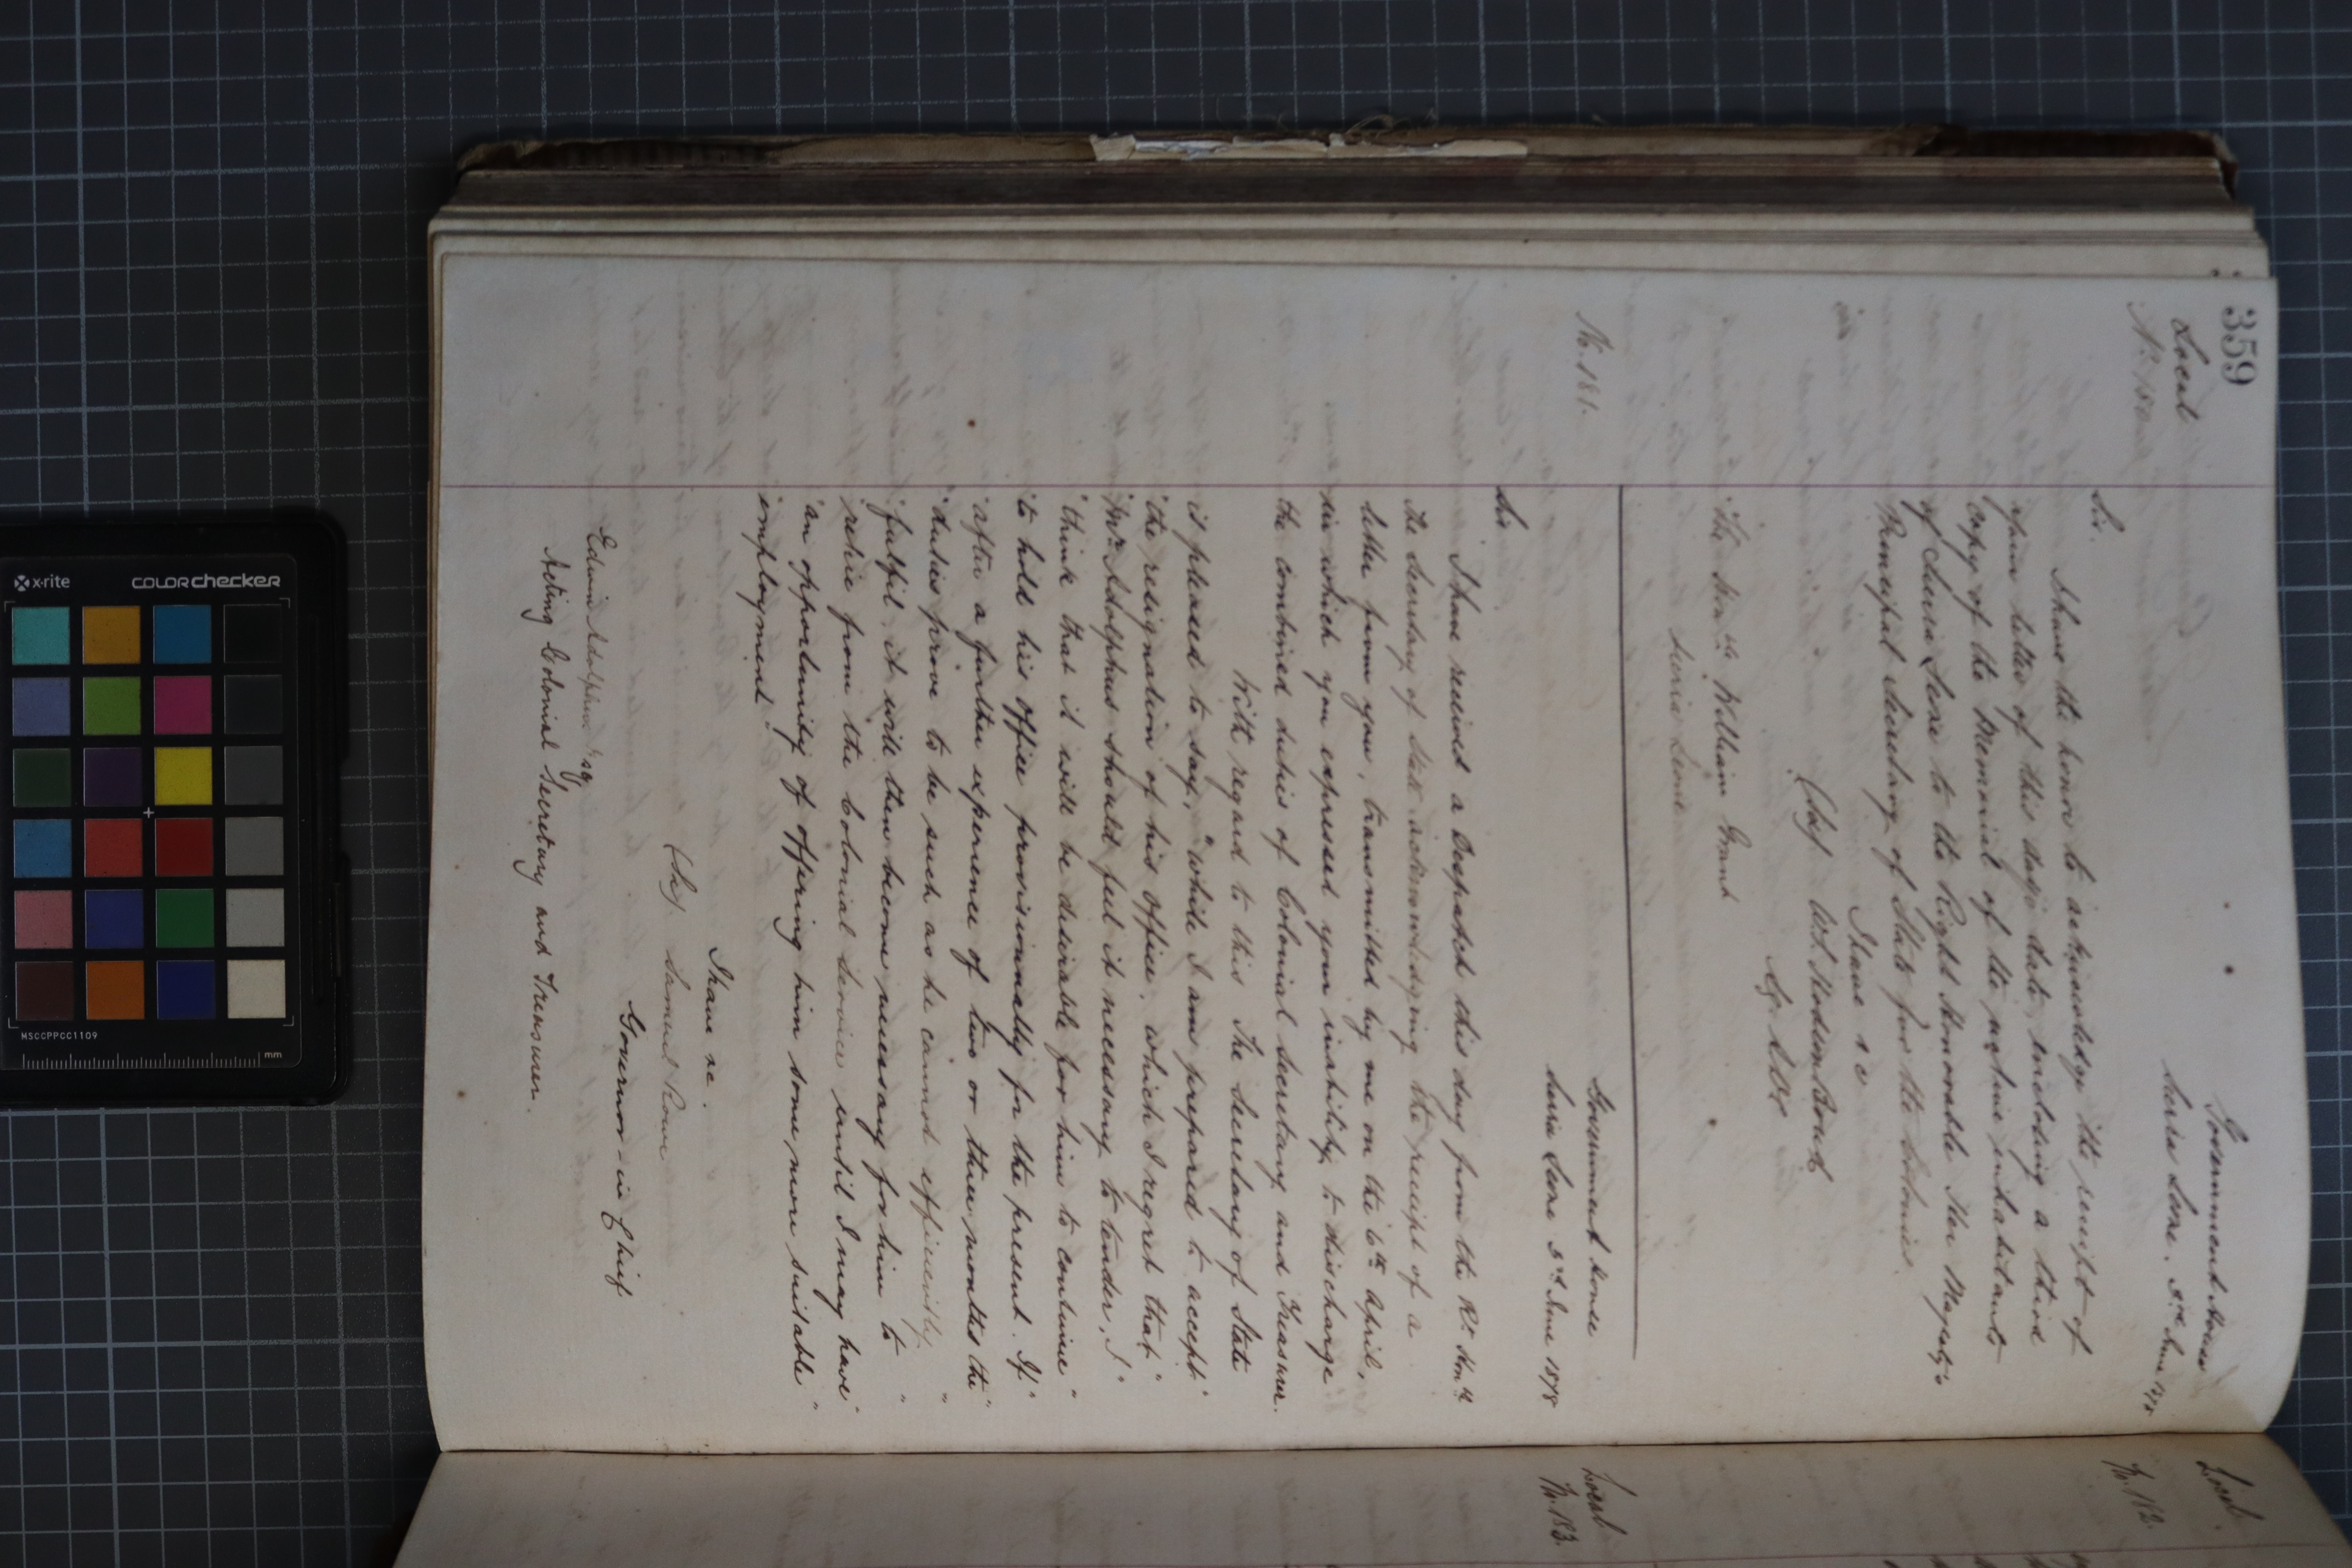 359
Local
No. 180
Government House
Sierra Leone, 5th June 1878
Sir.
I have the honor to acknowledge the receipt of
your letter of this day's date, enclosing a third
copy of the Memorial of the native inhabitants
of Sierra Leone to the Right Honorable Her Majesty's
Principal Secretary of State for the Colonies.
I have &c
(Sd)
The Honble William Grant
Sierra Leone
No. 181.
Government House
Sierra Leone 5th June 1878
Sir
I have received a Despatch this day from the Rt Honble
the Secretary of State acknowledging the receipt of a
letter from you, transmitted by me on the 6th April,
in which you expressed your inability to discharge
the combined duties of Colonial Secretary and Treasurer.
With regard to this The Secretary of State
is pleased to say, "while I am prepared to accept "
"the resignation of his Office, which I regret that "
"Mr Adolphus should feel it necessary to tender, I "
"think that it will be desirable for him to continue "
"to hold his office provisionally for the present. If "
"after a further experience of two or three months the "
"duties prove to be such as he cannot efficiently "
"fulfil it will then become necessary for him to "
"retire from the Colonial Service until I may have "
"an opportunity of offering him some more suitable "
"employment"
I have &c.
(Sd) Samuel Rowe
Governor-in-Chief
Edwin Adolphus Esq
Acting Colonial Secretary and Treasurer.
Local
No. 182.
Local
No. 183.
x-rite
COLORchecker
MSCCPPCC1109
mm